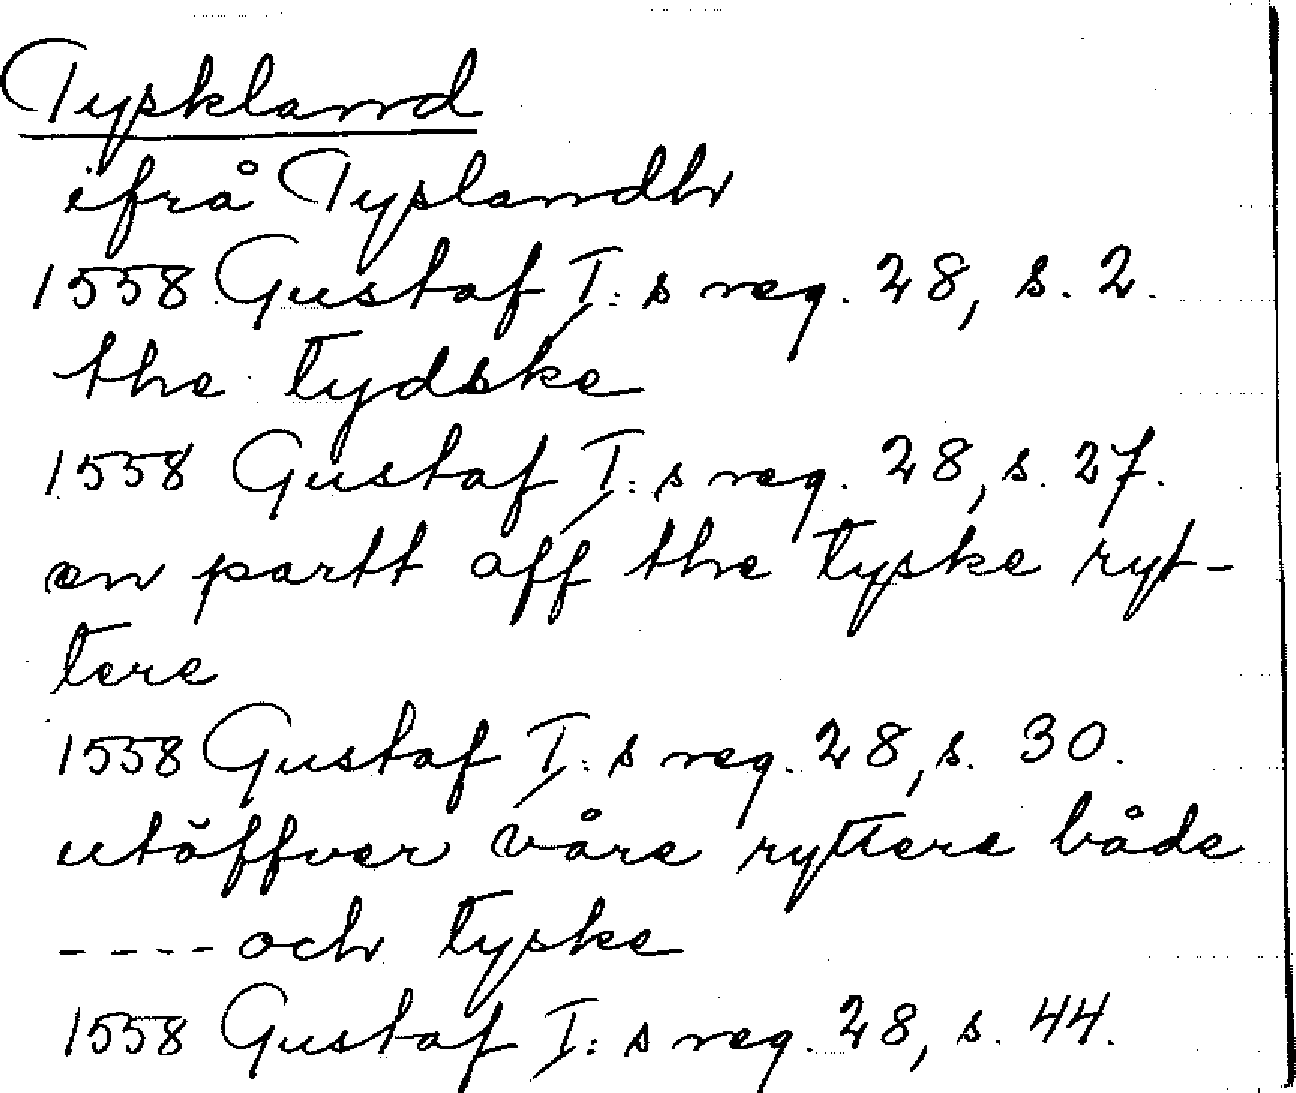 Tyskland
ifrå Tyslandh
1558 Gustaf I:s reg. 28, s. 2.
the tydske
1558 Gustaf I:s reg. 28, s. 27.
en partt aff the tyske ryt-
tere
1558 Gustaf I:s reg. 28, s. 30.
utöffver våre ryttere både
---- och tyske
1558 Gustaf I:s reg. 28, s. 44.